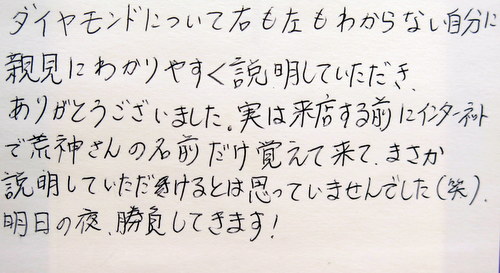 ダイヤモンドについて右も左もわからない自分に
親見にわかりやすく説明していただき、
ありがとうございました。実は来店する前にインターネット
で荒神さんの名前だけ覚えて来て、まさか
説明していただけるとは思っていませんでした(笑)。
明日の夜、勝負してきます!